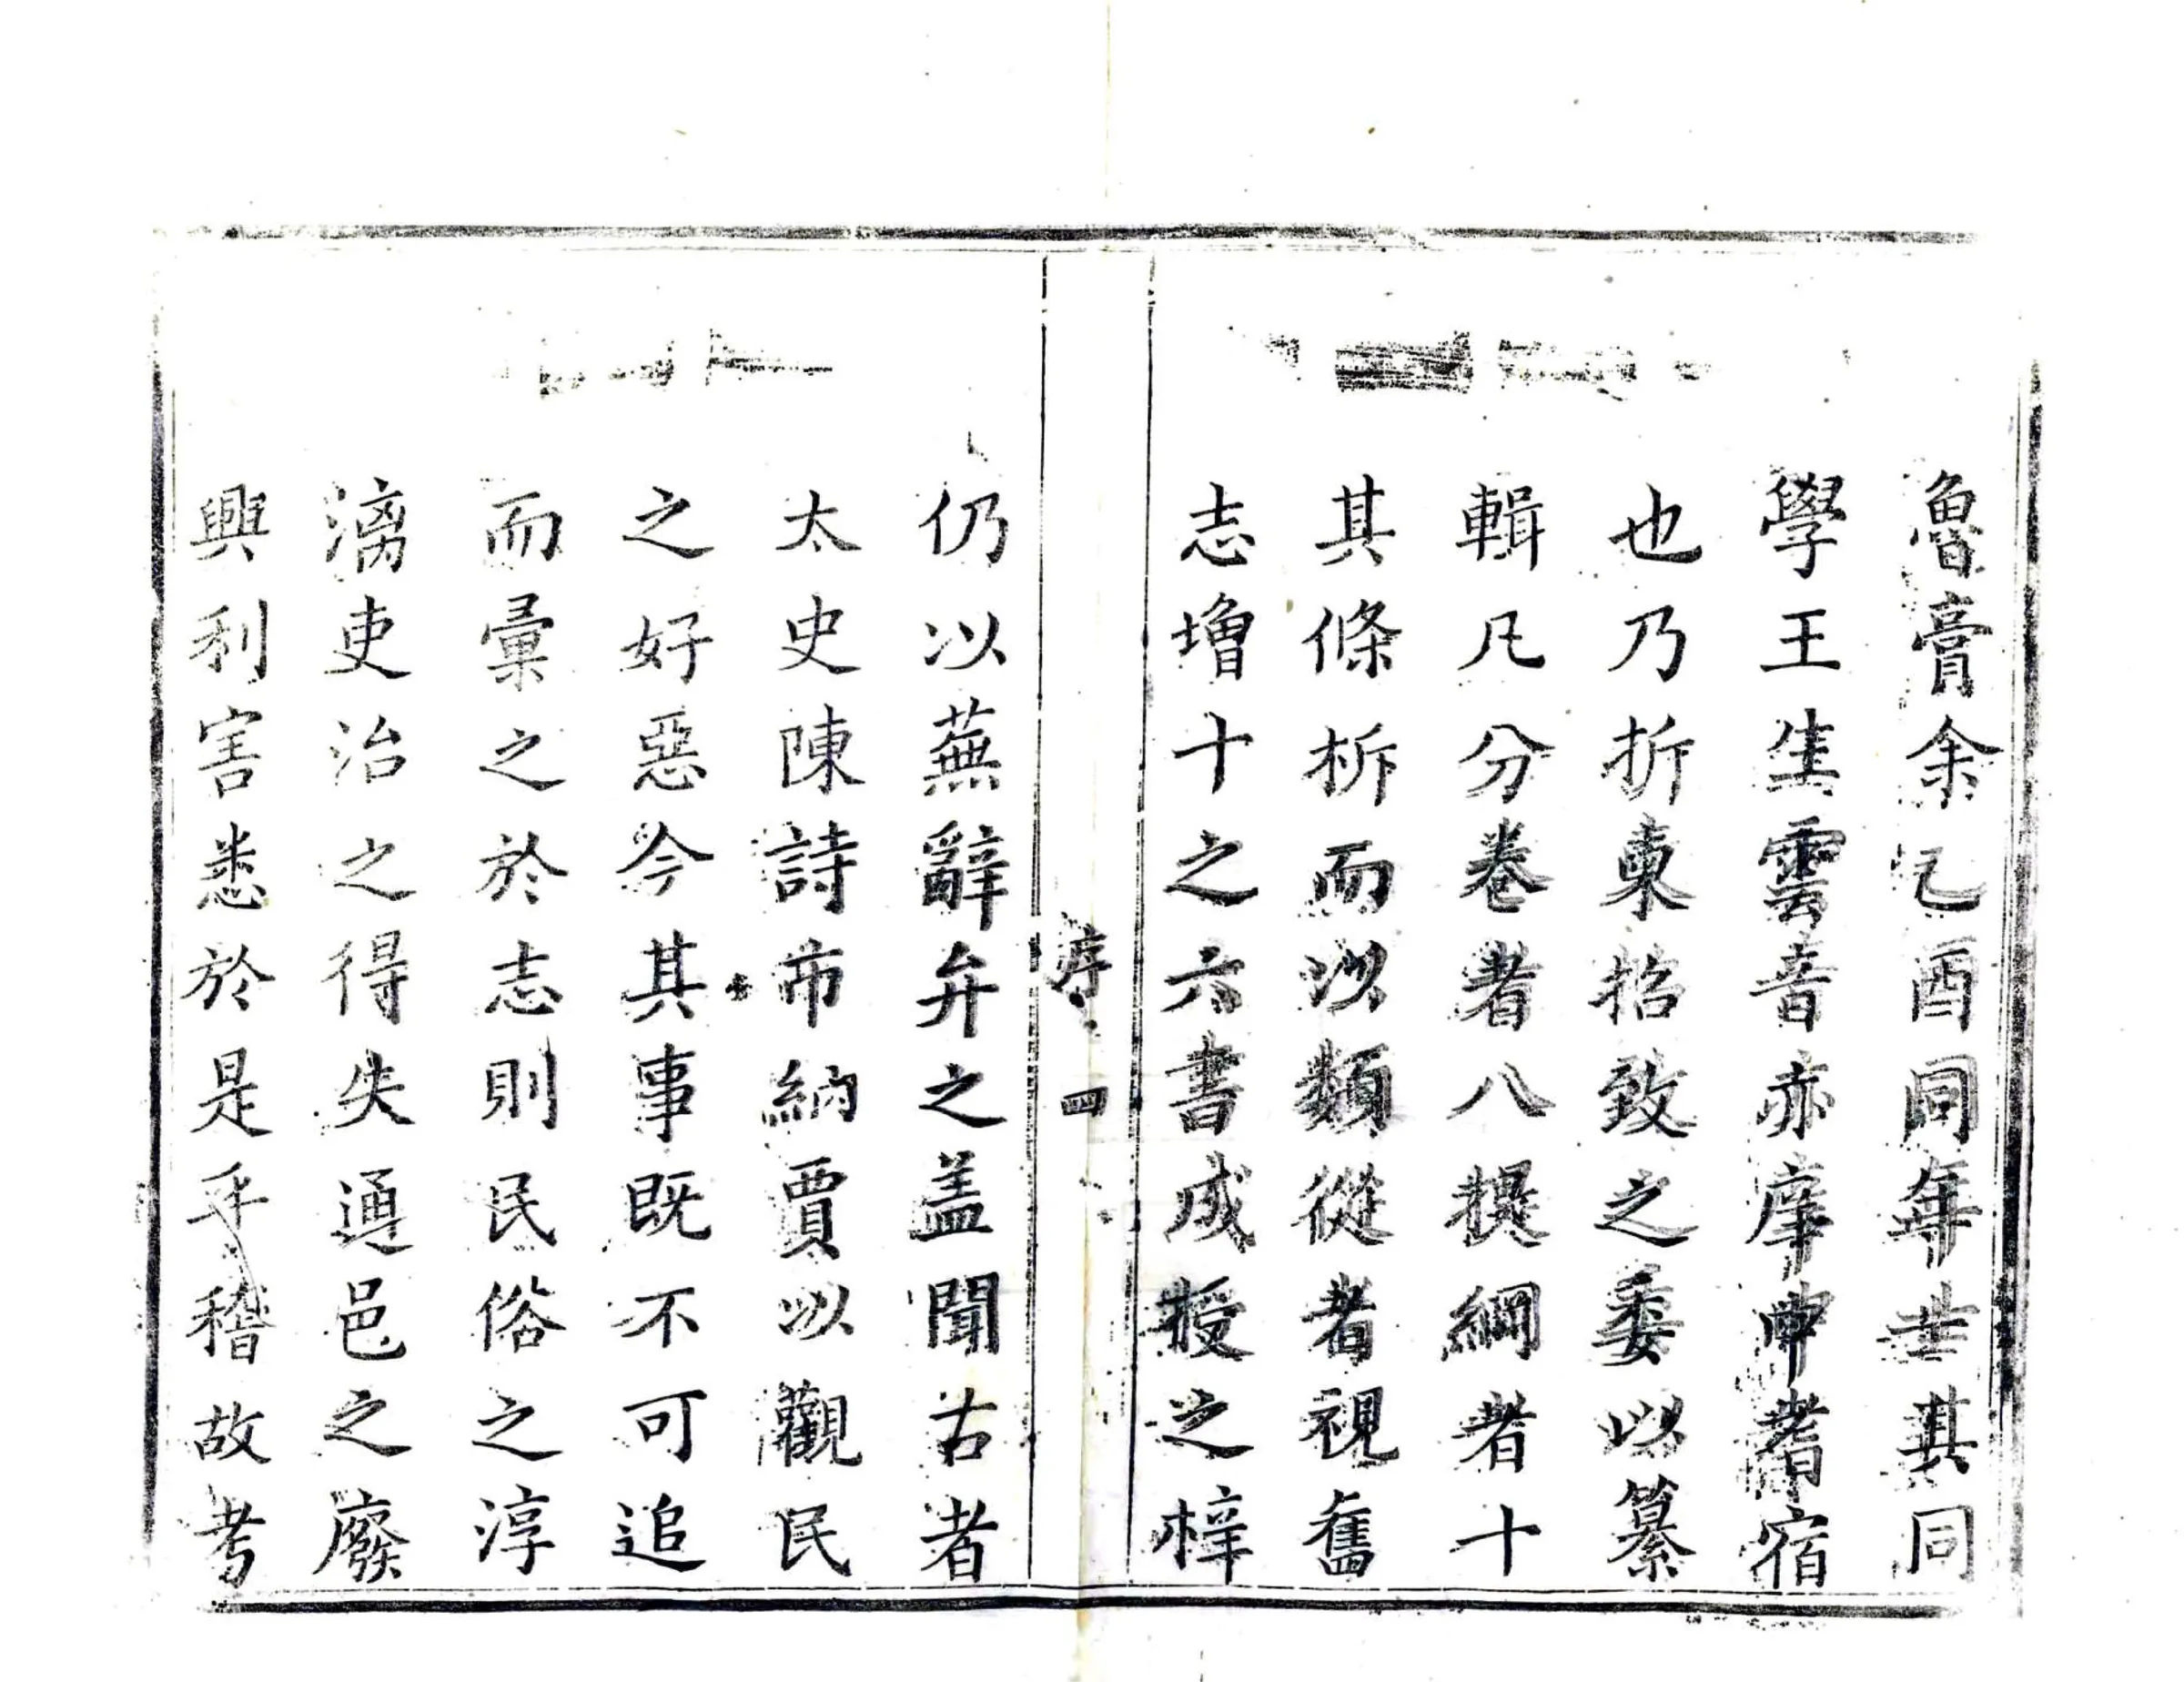 魯膏余乙酉同年世其同
學王生雲音亦庠中耆宿
也乃折柬招致之委以纂
輯凡分卷者八提綱者十
其條析而以類從者視舊
志增十之六書成授之梓
序 四
仍以蕪辭弁之盖聞古者
太史陳詩市納賈以觀民
之好惡今其事既不可追
而彙之於志則民俗之淳
漓吏治之得失通邑之廢
興利害悉於是乎稽故考